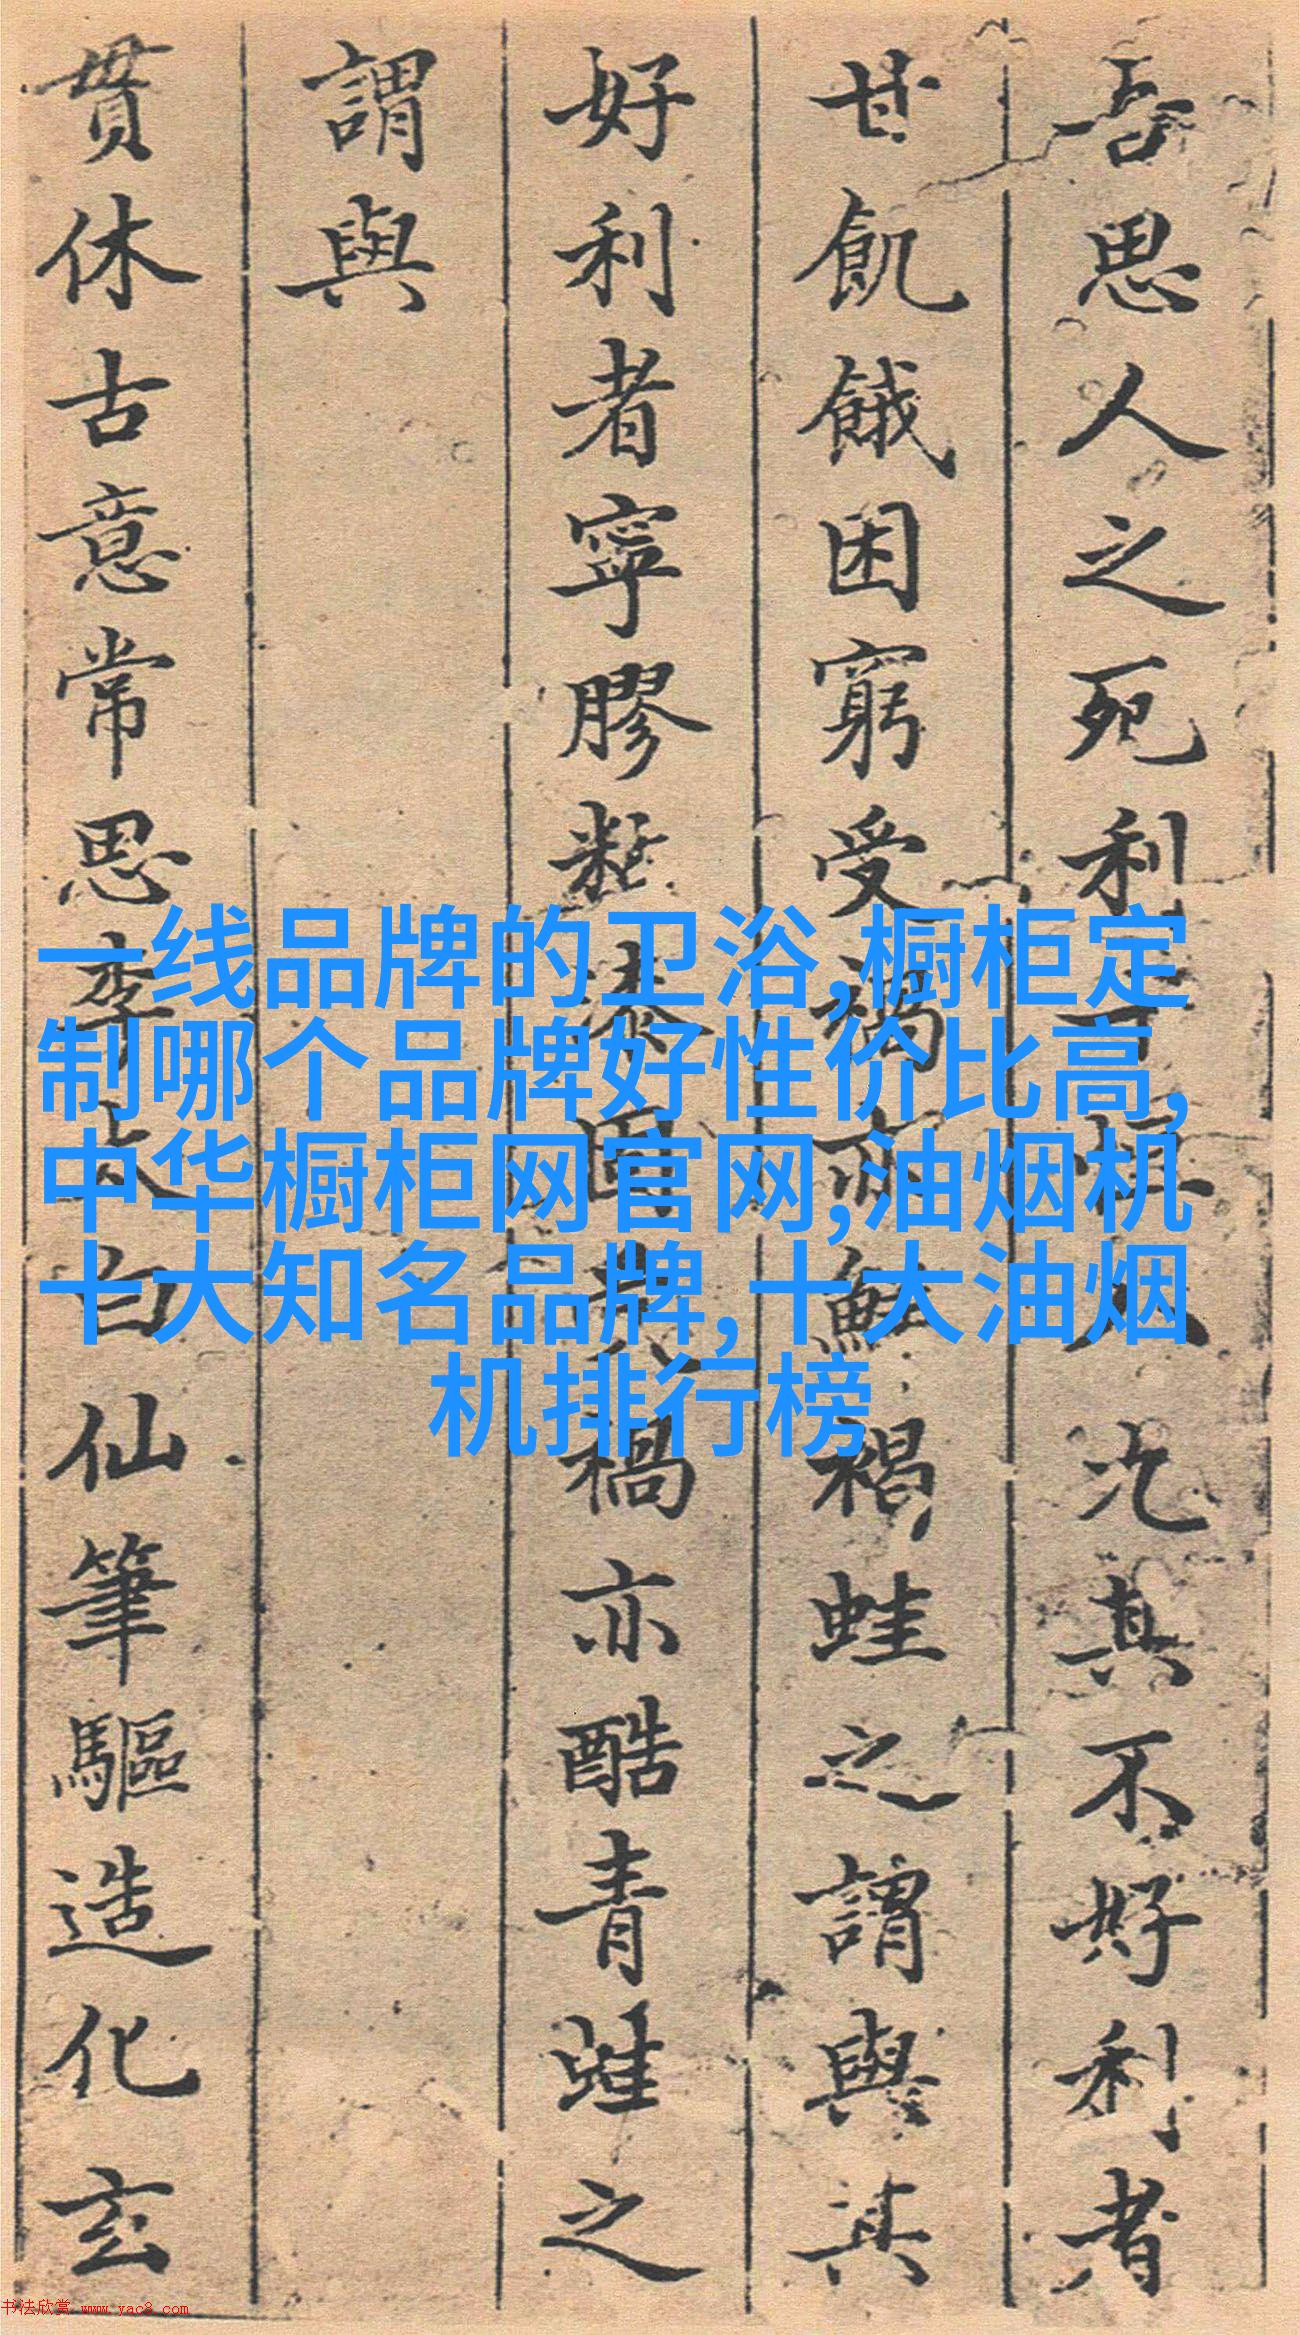 吾思人之死利恒八汔其不好利者
甘飢餓困窮受禍亦褐蛙之謂與其
好利者寧膠漆固禍亦酷青蛙之
謂與
貫休古意常思李太白仙筆驅造化玄
一线品牌的卫浴,橱柜定
制哪个品牌好性价比高,
中华橱柜网官网,油烟机
十大知名品牌,十大油烟
机排行榜
书法欣赏 www.yac8.com